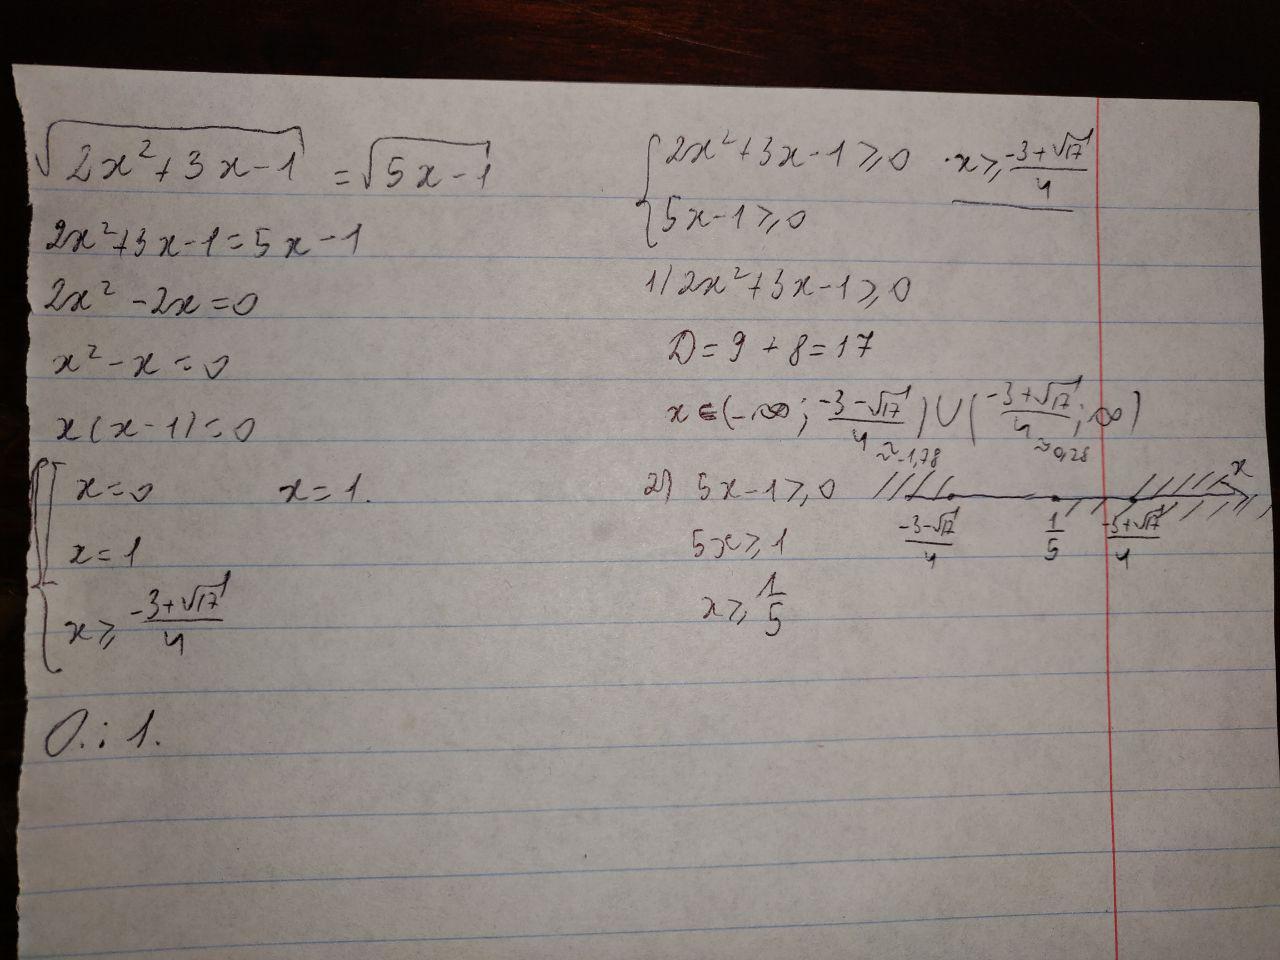 √(2x²+3x-1) = √(5x-1)
2x²+3x-1=5x-1
2x²-2x=0
x²-x=0
x(x-1)=0
x=0 x=1.
x=1
x⩾(-3+√17)/4
О.: 1.
{2x²+3x-1⩾0 · x⩾(-3+√17)/4
5x-1⩾0
1) 2x²+3x-1⩾0
D=9+8=17
x∈(-∞; (-3-√17)/4) ∪ ((-3+√17)/4; ∞)
≈-1,78 ≈0,28
2) 5x-1⩾0 x
(-3-√17)/4 1/5 (-3+√17)/4
5x⩾1
x⩾1/5